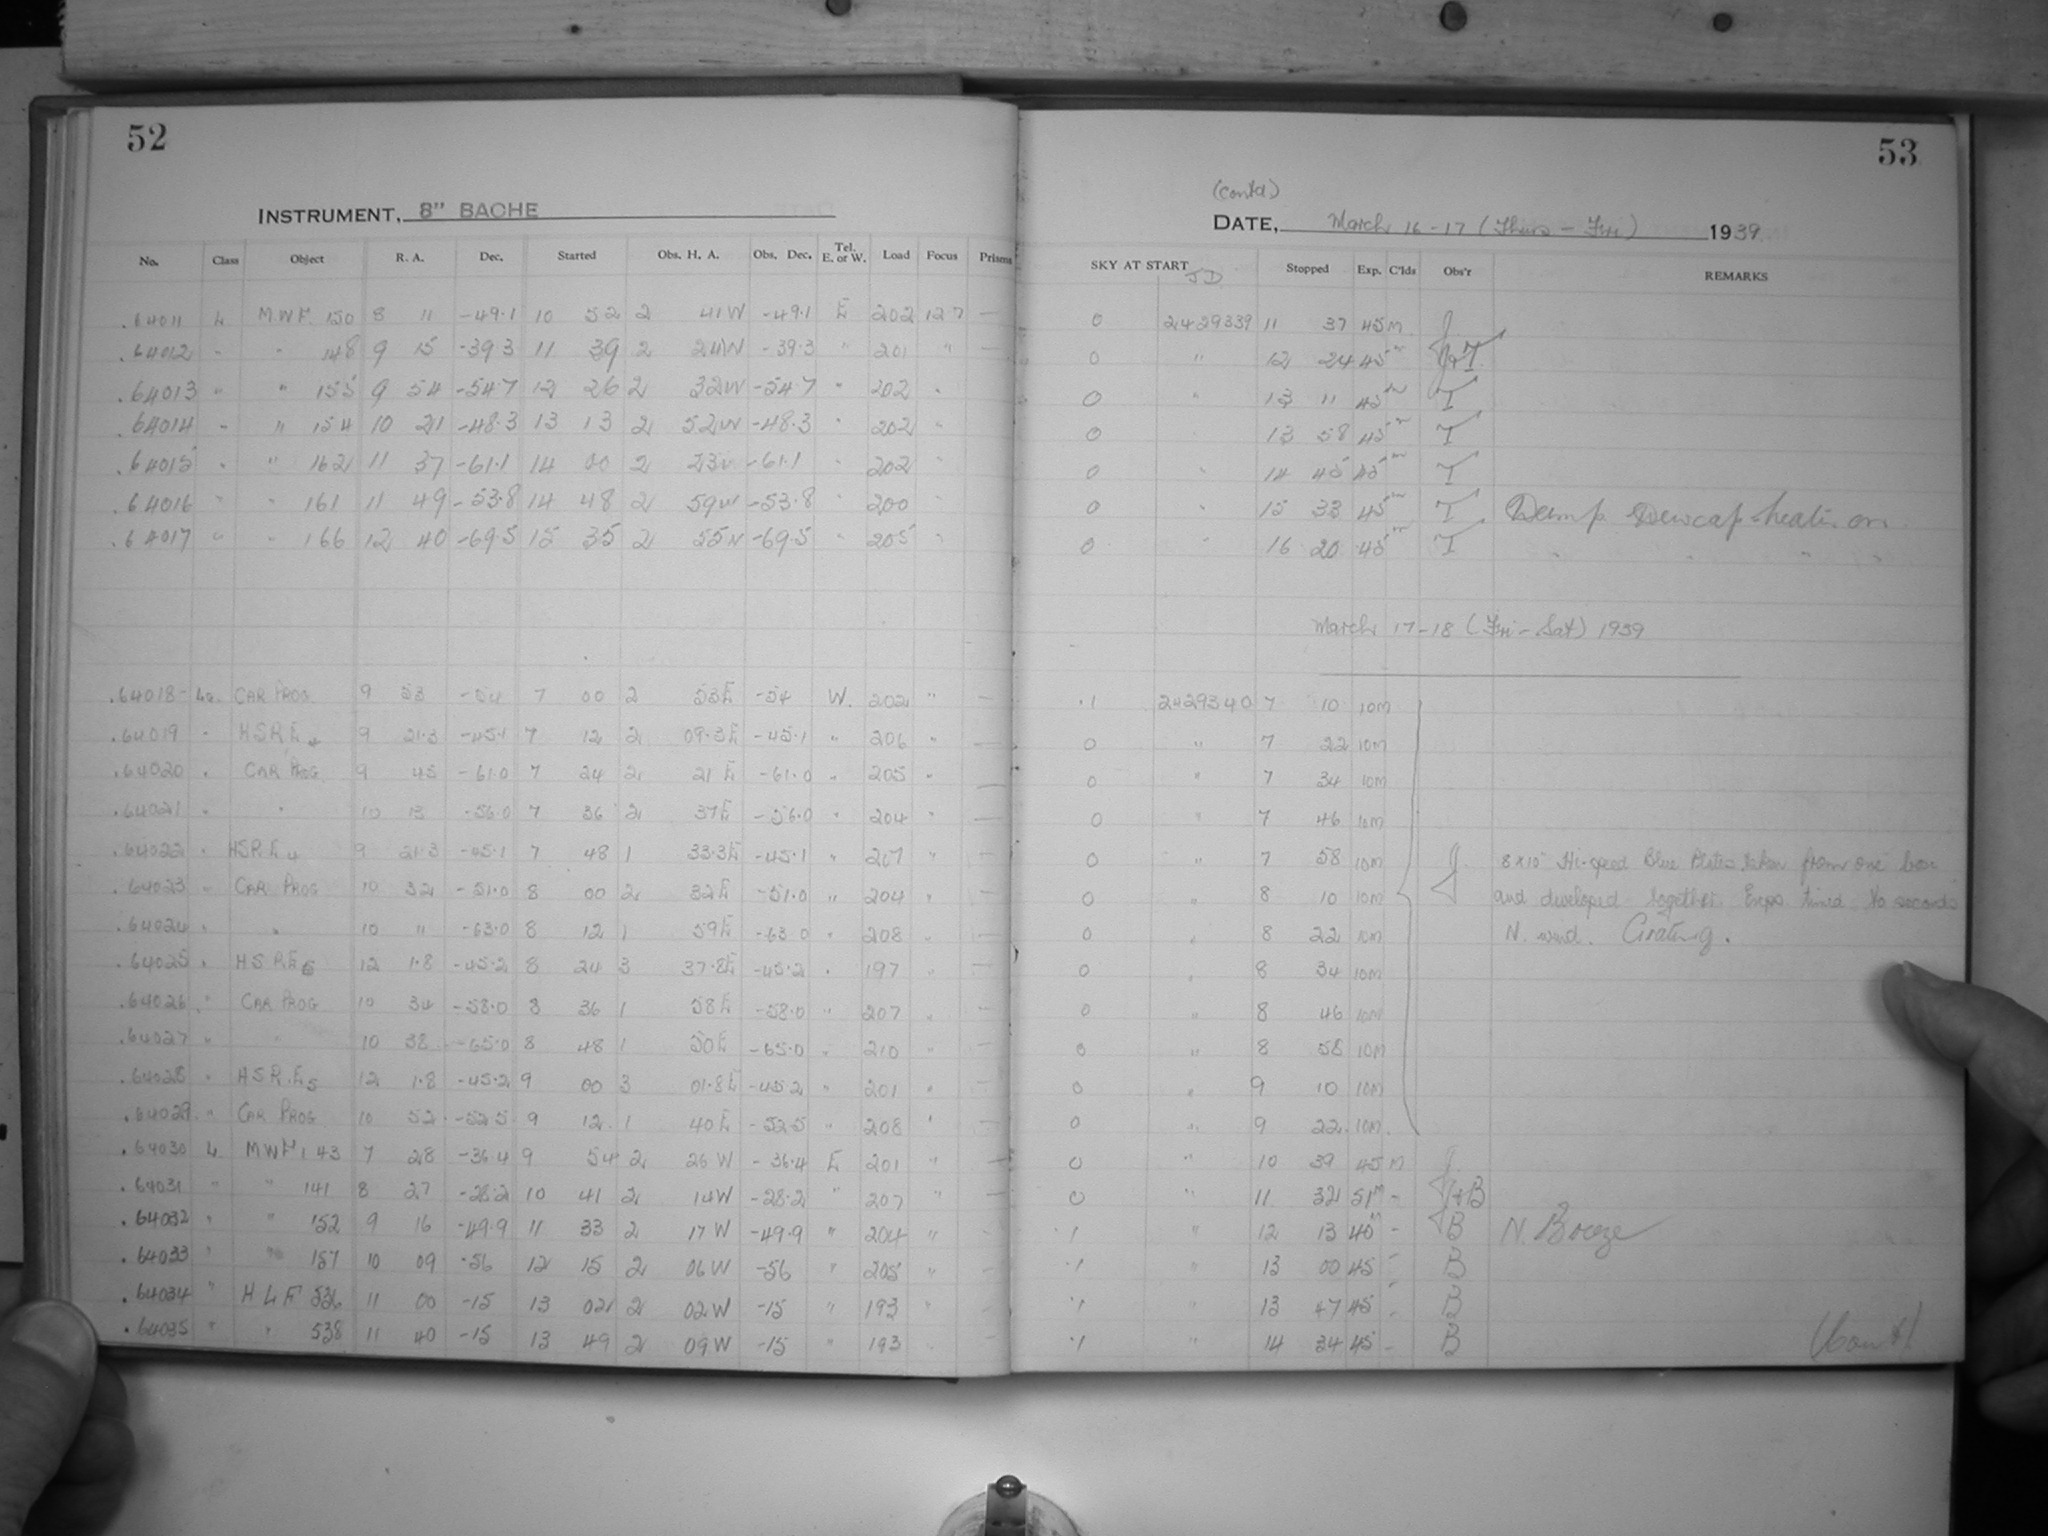 52
INSTRUMENT, 8" BACHE
No. Class Object R. A. Dec. Started Obs. H. A. Obs. Dec. Tel. E. or W. Load Focus Prisms
.64011 L M.W.F. 150 8 11 -49.1 10 52 2 41W -49.1 E 202 127 —
.64012 " " 148 9 15 -39.3 11 39 2 24W -39.3 " 201 " —
.64013 " " 155 9 54 -54.7 12 26 2 32W -54.7 " 202 "
.64014 " " 154 10 21 -48.3 13 13 2 52W -48.3 " 202 "
.64015 " " 162 11 37 -61.1 14 00 2 23W -61.1 " 202 "
.64016 " " 161 11 49 -53.8 14 48 2 59W -53.8 " 200 "
.64017 " " 166 12 40 -69.5 15 35 2 55W -69.5 " 205 "
.64018 - CAR PROG. 9 53 -54 7 00 2 53E -54 W. 202 " —
.64019 " HSRE4 9 21.3 -45.1 7 12 2 09.3E -45.1 " 206 " —
.64020 " CAR PROG 9 45 -61.0 7 24 2 21E -61.0 " 205 " —
.64021 " " 10 13 -56.0 7 36 2 37E -56.0 " 204 " —
.64022 " HSRE4 9 21.3 -45.1 7 48 1 33.3E -45.1 " 207 " —
.64023 " CAR PROG 10 32 -51.0 8 00 2 32E -51.0 " 204 " —
.64024 " " 10 11 -63.0 8 12 1 59E -63.0 " 208 " —
.64025 " HSRE5 12 1.8 -45.2 8 24 3 37.8E -45.2 " 197 " —
.64026 " CAR PROG 10 34 -58.0 8 36 1 58E -58.0 " 207 " —
.64027 " " 10 38 -65.0 8 48 1 50E -65.0 " 210 " —
.64028 " HSR.E5 12 1.8 -45.2 9 00 3 01.8E -45.2 " 201 " —
.64029 " CAR PROG 10 52 -52.5 9 12 1 40E -52.5 " 208 " —
.64030 L MWF 143 7 28 -36.4 9 54 2 26W -36.4 E 201 " —
.64031 " " 141 8 27 -28.2 10 41 2 14W -28.2 " 207 " —
.64032 " " 152 9 16 -49.9 11 33 2 17W -49.9 " 204 " —
.64033 " " 157 10 09 -56 12 15 2 06W -56 " 205 " —
.64034 " HLF 536 11 00 -15 13 02 2 02W -15 " 193 " —
.64035 " " 538 11 40 -15 13 49 2 09W -15 " 193 " —
53
(contd)
DATE, March 16-17 (Thurs - Fri) 1939
SKY AT START JD Stopped Exp. C'lds Obs'r REMARKS
0 2429339 11 37 45m J
0 " 12 24 45m J+T
0 " 13 11 45m T
0 " 13 58 45m T
0 " 14 45 45m T
0 " 15 33 45m T Damp Dewcap-heater on
0 " 16 20 45m T " " " "
March 17-18 (Fri-Sat) 1939
.1 2429340 7 10 10M
0 " 7 22 10M
0 " 7 34 10M
0 " 7 46 10M
0 " 7 58 10M J. 8x10 Hi-speed Blue Plates taken from one box
0 " 8 10 10M and developed together. Exps timed to seconds
0 " 8 22 10M N. wind. Grating.
0 " 8 34 10M
0 " 8 46 10M
0 " 8 58 10M
0 " 9 10 10M
0 " 9 22 10M
0 " 10 39 45M J.
0 " 11 32 51m - J+B
.1 " 12 13 40m - B N. Breeze
.1 " 13 00 45 - B
.1 " 13 47 45 - B
.1 " 14 34 45 - B
(Cont'd)